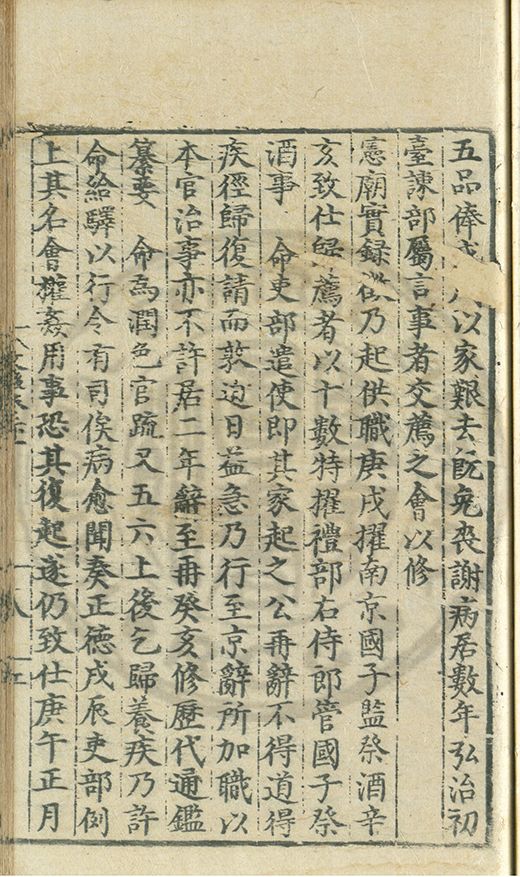 五品俸以家艱去既免喪謝病居數年弘治初
臺諫部屬言事者交薦之會以修
憲廟實録徵乃起供職庚戌擢南京國子監祭酒辛
亥致仕歸薦者以十數特擢禮部右侍郎管國子祭
酒事　命吏部遣使即其家起之公再辭不得道得
疾徑歸復請而敦迫日益急乃行至京辭所加職以
本官治事亦不許居二年辭至再癸亥修歷代通鑑
纂要　命為潤色官疏又五六上後乞歸養疾乃許
命給驛以行令有司俟病愈聞奏正德戊辰吏部例
上其名會權姦用事恐其復起遂仍致仕庚午正月